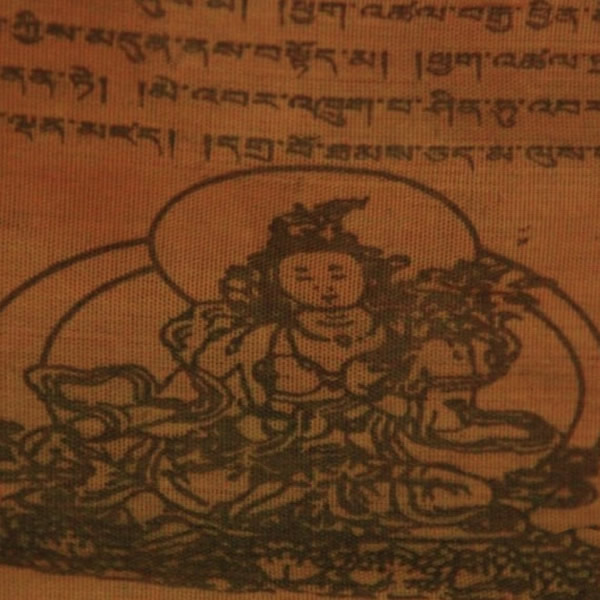 ནུས་མ། །ཕྱག་འཚལ་བརྒྱ་བྱིན་
ཀྱིས་མདུན་ནས་བསྟོད་མ། །ཕྱག་འཚལ་
ནན་ཏེ། །མེ་འབར་འཁྲུག་པ་ཤིན་ཏུ་འབར
ལྡན་མཛད། །དགྲ་བོ་ཐམས་ཅད་མ་ལུས་